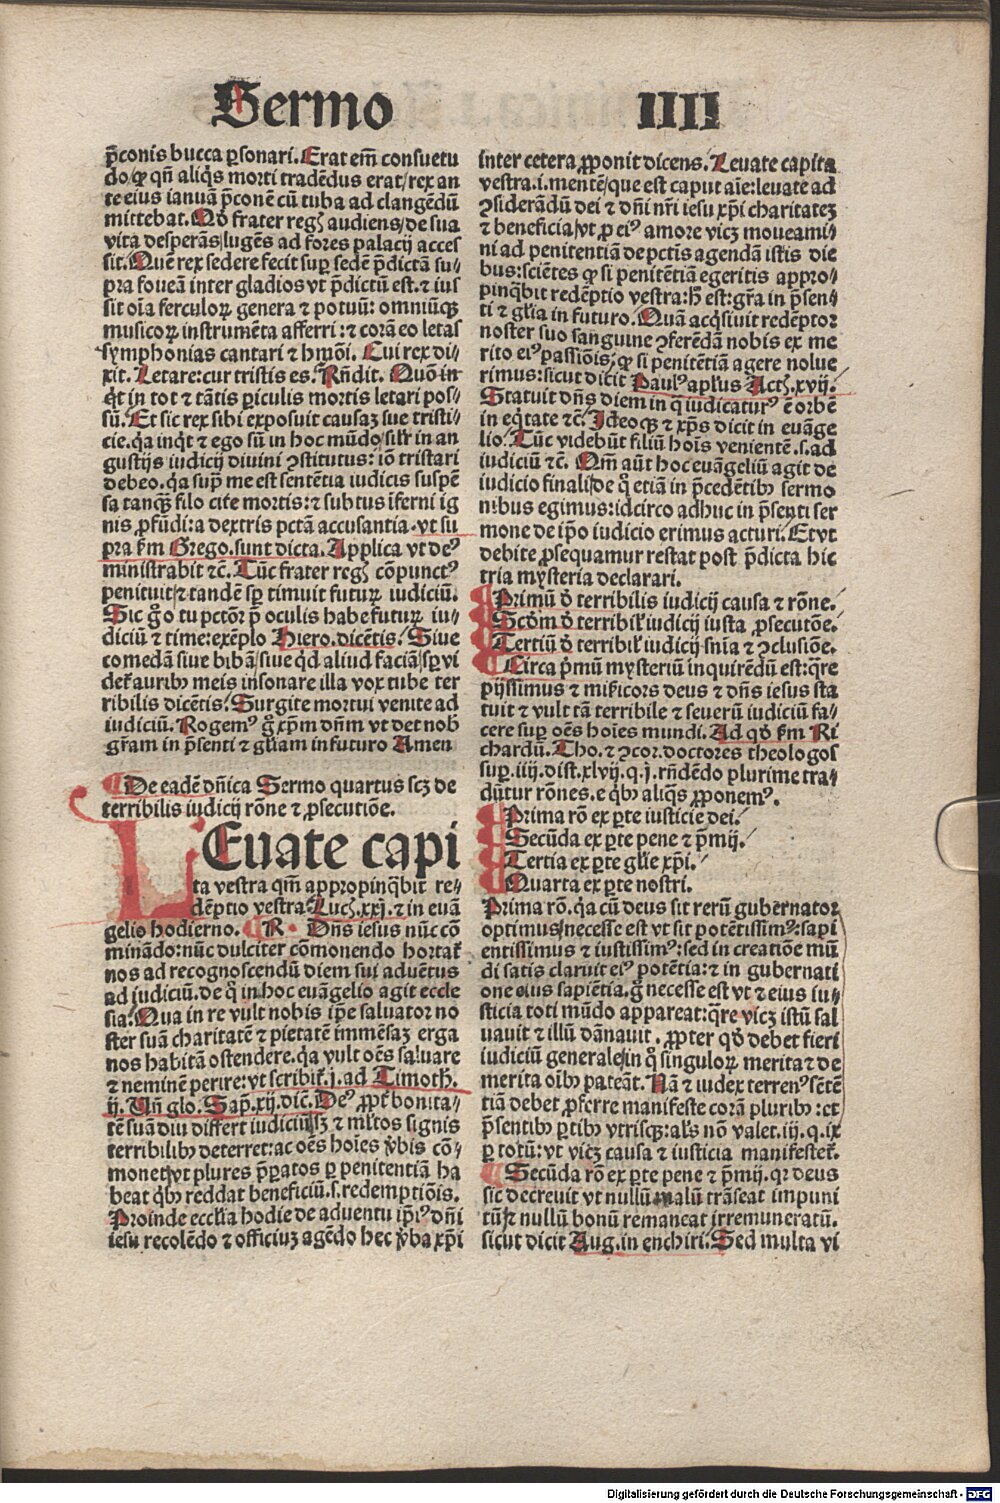 Sermo IIII
p̃conis bucca ꝑsonari. Erat em̃ consuetu
do/ꝙ qñ aliq̃s morti tradẽdus erat/rex an
te eius ianuã p̃conẽ cũ tuba ad clangẽdũ
mittebat. Qđ frater regꝭ audiens/de sua
vita desperãs/lugẽs ad fores palacij acces
sit. Quẽ rex sedere fecit suꝑ sedẽ p̃dictã su/
pra foueã inter gladios vt p̃dictũ est. ⁊ ius
sit oĩa ferculoꝝ genera ⁊ potuũ: omniũqꝫ
musicoꝝ instrumẽta afferri: ⁊ corã eo letas
symphonias cantari ⁊ hmõi. Cui rex di/
xit. Letare: cur tristis es. Rñdit. Quõ in
q̃t in tot ⁊ tãtis ꝑiculis mortis letari pos/
sũ. Et sic rex sibi exposuit causaꝫ sue tristi/
cie. q̃a inq̃t ⁊ ego sũ in hoc mũdo/silr̃ in an
gustijs iudicij diuini ꝯstitutus: iõ tristari
debeo. q̃a suꝑ me est sentẽtia iudicis suspẽ
sa tanqꝫ filo cite mortis: ⁊ subtus ĩferni ig
nis ꝓfũdi: a dextris pctã accusantia. vt su
pra ẜm Grego. sunt dicta. Applica vt deꝰ
ministrabit ⁊c̃. Tũc frater regꝭ cõpunctꝰ
penituit/⁊ tandẽ sꝑ timuit futuꝝ iudiciũ.
Sic g̊o tu pctõr p̱ oculis habe futuꝝ iu/
diciũ ⁊ time: exẽplo Hiero. dicẽtis. Siue
comedã siue bibã/siue q̃d aliud faciã/sꝑ vi
det̃ auribꝰ meis insonare illa vox tube ter
ribilis dicẽtis. Surgite mortui venite ad
iudiciũ. Rogemꝰ g̊ xp̃m dñm vt det nob̃
gr̃am in p̃senti ⁊ gl̃iam in futuro Amen
De eadẽ dñica Sermo quartus scꝫ de
terribilis iudicij rõne ⁊ ꝓsecutiõe.
LEuate capi
ta vestra qm̃ appropinq̃bit re/
dẽptio vestra. Luc̃. xxj. ⁊ in euã
gelio hodierno. R. Dñs iesus nũc cõ
minãdo: nũc dulciter cõmonendo hortat̃
nos ad recognoscendũ diem sui aduẽtus
ad iudiciũ. de q̊ in hoc euãgelio agit eccle
sia. Qua in re vult nobis ip̃e saluator no
ster suã charitatẽ ⁊ pietatẽ immẽsaꝫ erga
nos habitã ostendere. q̃a vult oẽs saluare
⁊ neminẽ perire: vt scribit̃. j. ad Timoth̃.
ij. Vñ glo. Sap̃. xij. dic̃. Deꝰ ꝓpt̃ bonita/
tẽ suã diu differt iudiciũ/sꝫ ⁊ ml̃tos signis
terribilibꝰ deterret: ac oẽs hoĩes v̾bis cõ/
monet/vt plures p̃paratos ꝑ penitentiã ha
beat q̃bꝰ reddat beneficiũ. s. redemptiõis.
Proinde eccl̃ia hodie de aduentu ip̃iꝰ dñi
iesu recolẽdo ⁊ officiuꝫ agẽdo hec v̾ba xp̃i
inter cetera ꝓponit dicens. Leuate capita
vestra. i. mentẽ/que est caput aĩe: leuate ad
ꝯsiderãdũ dei ⁊ dñi nr̃i iesu xp̃i charitateꝫ
⁊ beneficia/vt ꝓ eiꝰ amore vicꝫ moueami/
ni ad penitentiã de pctĩs agendã istis die
bus: sciẽtes ꝙ si penitẽtiã egeritis appro/
pinq̃bit redẽptio vestra: h̃ est: gr̃a in p̃sen/
ti ⁊ gl̃ia in futuro. Quã acq̃siuit redẽptor
noster suo sanguine ꝯferẽdã nobis ex me
rito eiꝰ passiõis/ꝙ si penitẽtiã agere nolue
rimus: sicut dicit Paulꝰ apl̃us Act̃. xvij.
Statuit dñs diem in q̃ iudicaturꝰ ẽ orbẽ
in eq̃tate ⁊c̃. Ideoqꝫ ⁊ xp̃s dicit in euãge
lio. Tũc videbũt filiũ hoĩs venientẽ. s. ad
iudiciũ ⁊c̃. Qm̃ aũt hoc euãgeliũ agit de
iudicio finali/de q̊ etiã in p̃cedẽtibꝰ sermo
nibus egimus: idcirco adhuc in p̃senti ser
mone de ip̃o iudicio erimus acturi. Et vt
debite ꝓsequamur restat post p̃dicta hic
tria mysteria declarari.
Primũ d̾ terribilis iudicij causa ⁊ rõne.
Scd̾m d̾ terribil̃ iudicij iusta ꝓsecutõe.
Tertiũ d̾ terribil̃ iudicij sñia ⁊ ꝯclusiõe.
Circa p̃mũ mysteriũ inquirẽdũ est: q̃re
pijssimus ⁊ mis̃icors deus ⁊ dñs iesus sta
tuit ⁊ vult tã terribile ⁊ seuerũ iudiciũ fa/
cere suꝑ oẽs hoĩes mundi. Ad qđ ẜm Ri
chardũ. Tho. ⁊ ꝯcor. doctores theologos
suꝑ. iiij. dist. xlvij. q. j. rñdẽdo plurime tra/
dũtur rõnes. e q̃bꝰ aliq̃s ꝓponemꝰ.
Prima rõ ex ꝑte iusticie dei.
Secũda ex ꝑte pene ⁊ p̃mij.
Tertia ex ꝑte gl̃ie xp̃i.
Quarta ex ꝑte nostri.
Prima rõ. q̃a cũ deus sit rerũ gubernator
optimus/necesse est vt sit potẽtissimꝰ: sapi
entissimus ⁊ iustissimꝰ: sed in creatiõe mũ
di satis claruit eiꝰ potẽtia: ⁊ in gubernati
one eius sapiẽtia. g̊ necesse est vt ⁊ eius iu/
sticia toti mũdo appareat: q̃re vicꝫ istũ sal
uauit ⁊ illũ dãnauit. ꝓpter qđ debet fieri
iudiciũ generale/in q̊ singuloꝝ merita ⁊ de
merita oĩbꝰ pateãt. Nã ⁊ iudex terrenꝰ sẽtẽ
tiã debet ꝓferre manifeste corã pluribꝰ: et
p̃sentibꝰ ꝑtibꝰ vtrisqꝫ: al̃s nõ valet. iij. q. ix
ꝑ totũ: vt vicꝫ causa ⁊ iusticia manifestet̃.
Secũda rõ ex ꝑte pene ⁊ p̃mij. qꝛ deus
sic decreuit vt nullũ malũ trãseat impuni
tũ/⁊ nullũ bonũ remaneat irremuneratũ.
sicut dicit Aug. in enchiri. Sed multa vi
Digitalisierung gefördert durch die Deutsche Forschungsgemeinschaft - DFG